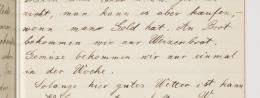 nicht, man kann es aber kaufen,
wenn man Geld hat. An Brot
bekommen wir nur Weizenbrot.
Gemüse bekommen wir nur einmal
in der Woche.
Solange hier gutes Wetter ist kann